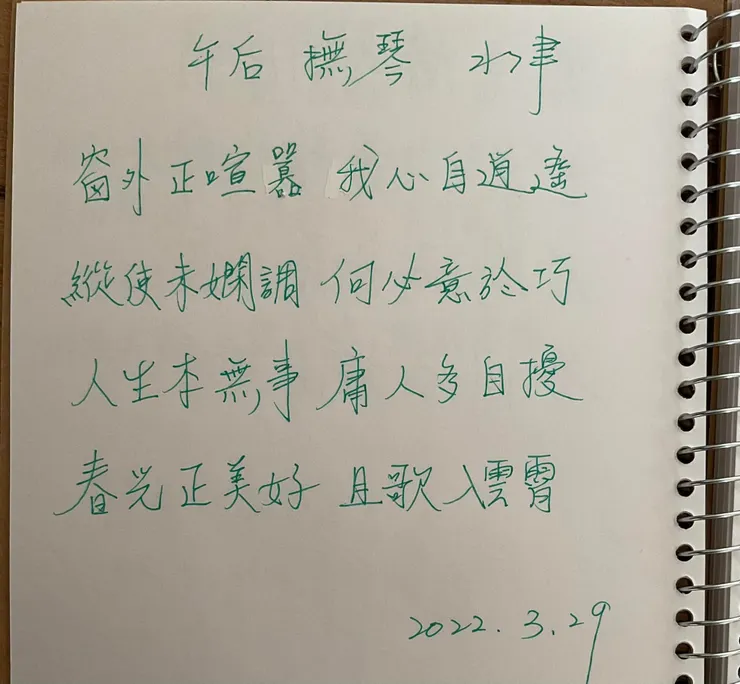 午后 撫琴 水聿
窗外正喧囂 我心自逍遙
縱使未嫻調 何必意於巧
人生本無事 庸人多自擾
春光正美好 且歌入雲霄
2022.3.29